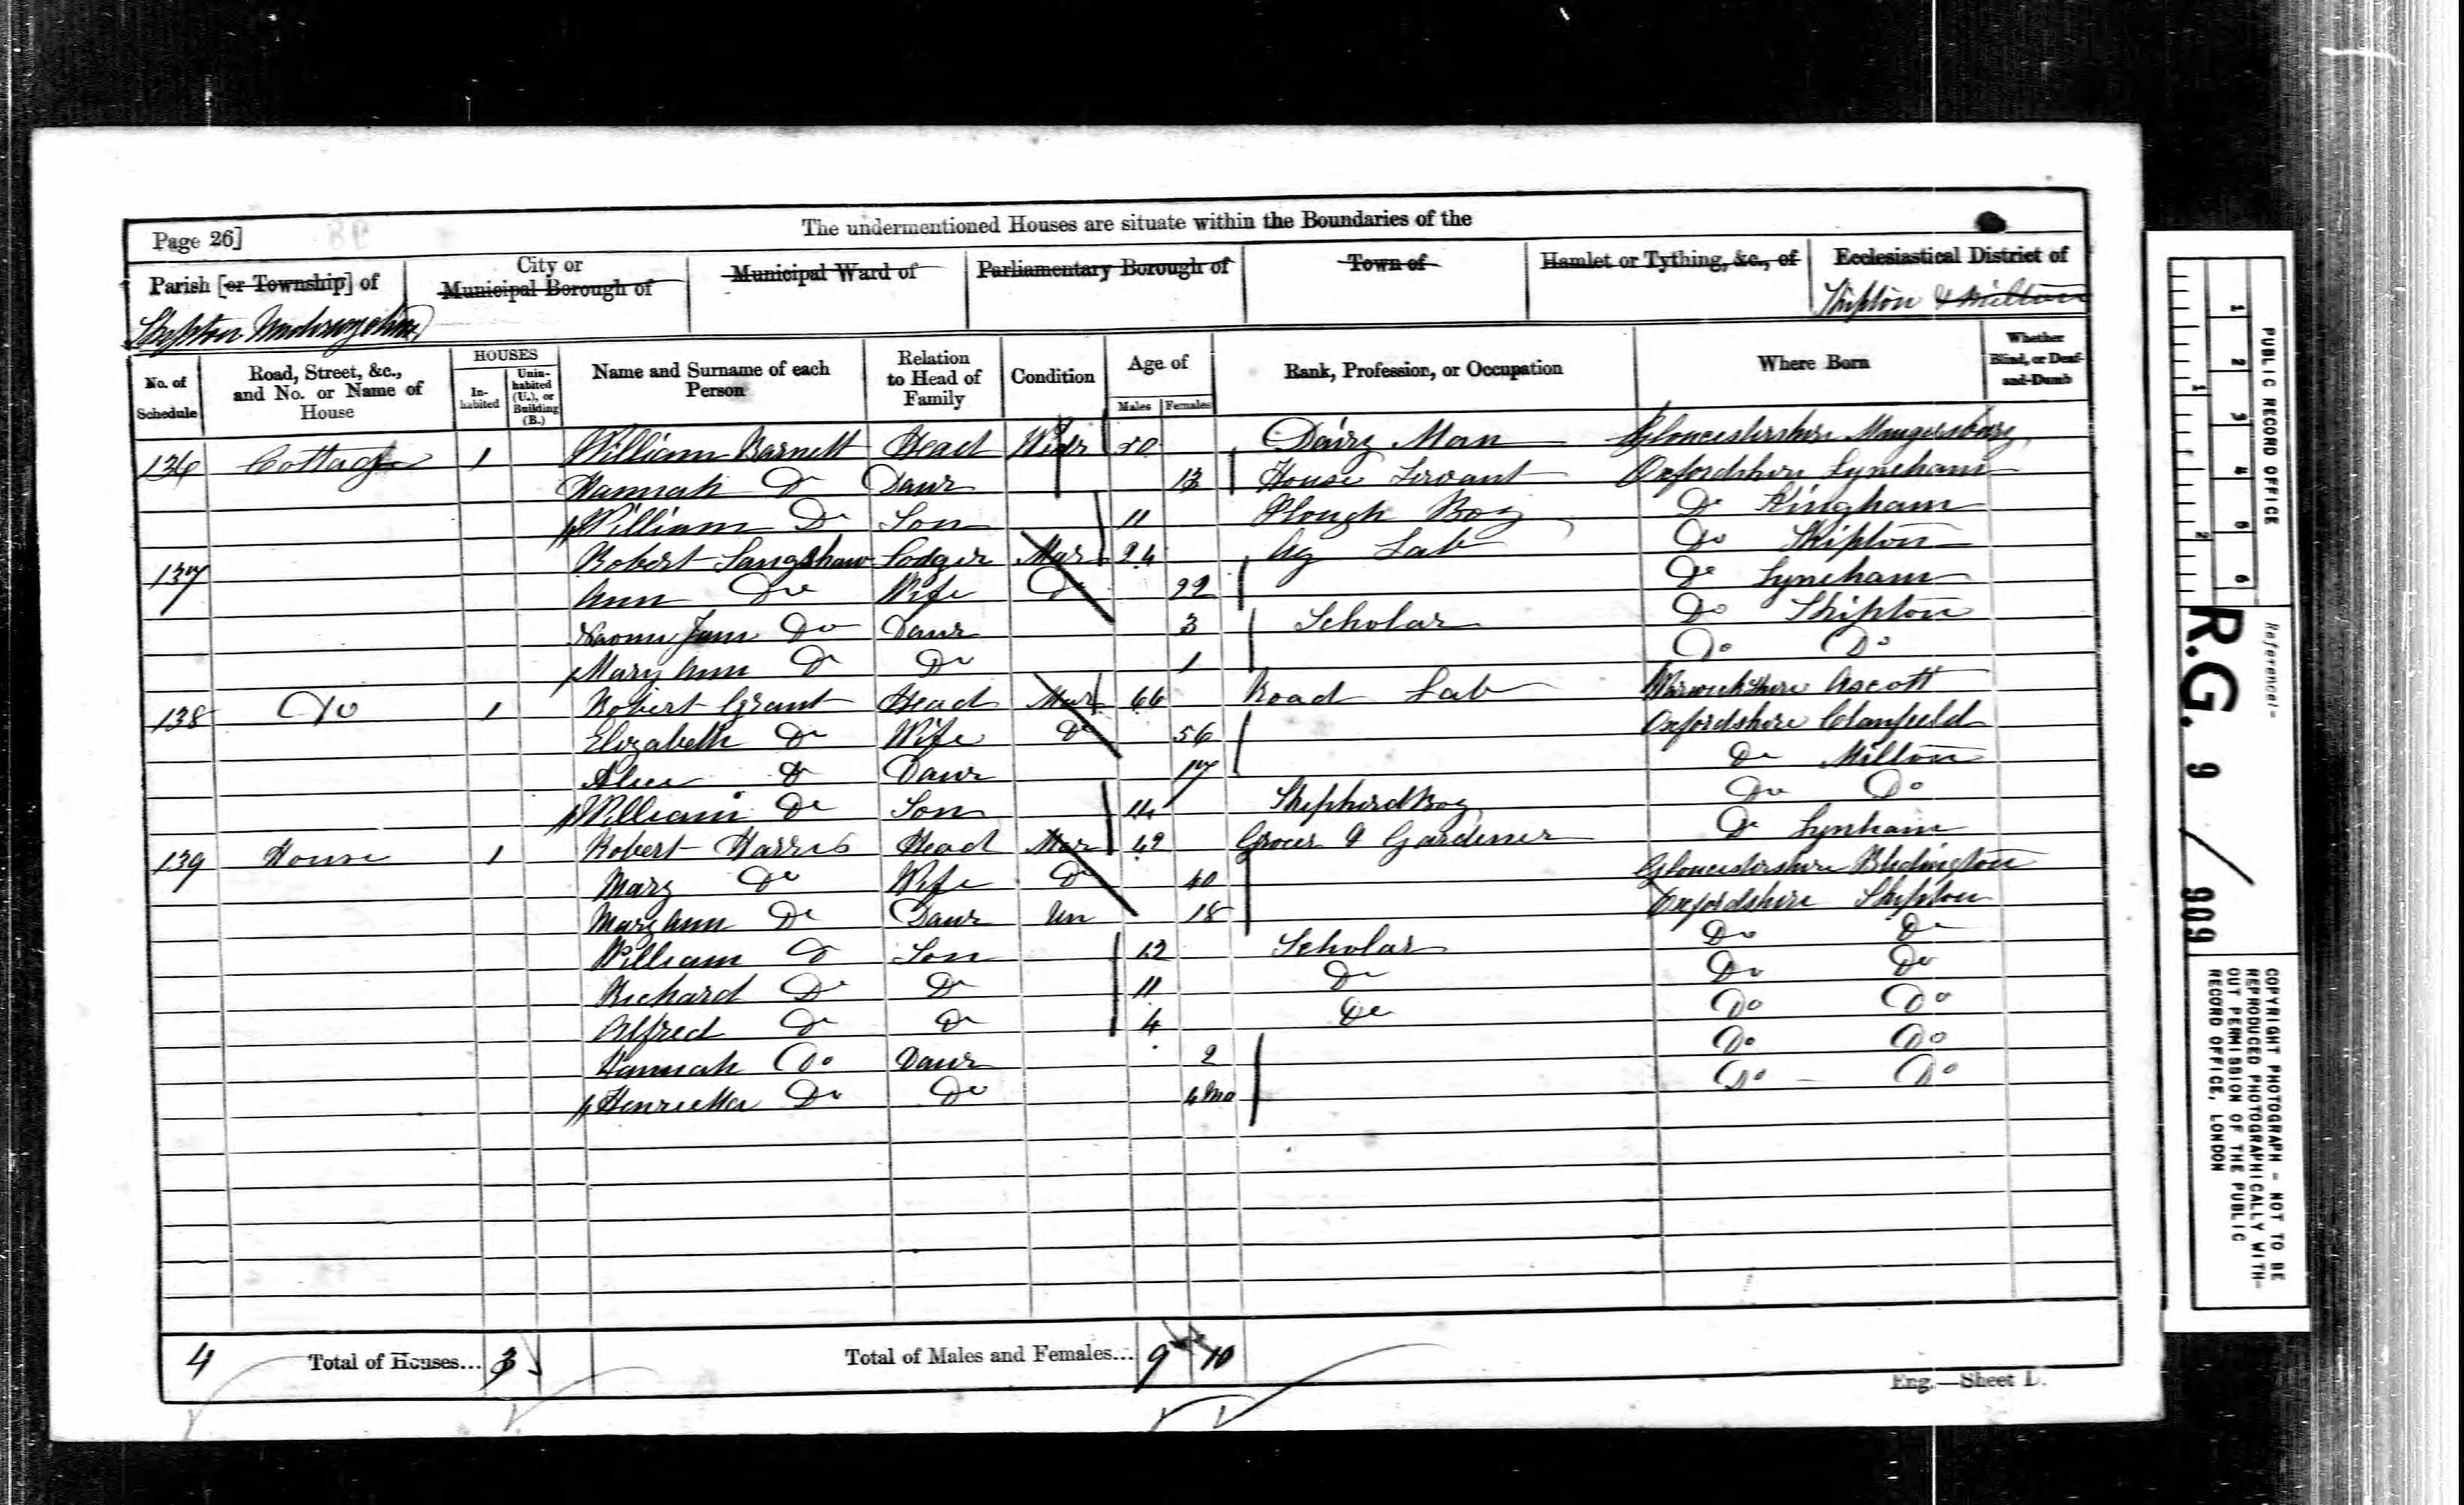 The undermentioned Houses are situate within the Boundaries of the
Page 26]
Parish [or Township] of
City or Municipal Borough of
Municipal Ward of
Parliamentary Borough of
Town of
Hamlet or Tything, &c., of
Ecclesiastical District of
Shipton
Shipton & Milton
No. of Schedule
Road, Street, &c., and No. or Name of House
HOUSES
In-habited
Unin-habited (U.), or Building (B.)
Name and Surname of each Person
Relation to Head of Family
Condition
Age of
Males
Females
Rank, Profession, or Occupation
Where Born
Whether Blind, or Deaf-and-Dumb
136 Cottage 1 William Barnett Head Widr 50 Dairy Man Gloucestershire Maugersbury
Hannah Do Daur 13 House Servant Oxfordshire Lyneham
William Do Son 11 Plough Boy Do Kingham
137 Robert Langshaw Lodger Mar 24 Ag Lab Do Shipton
Ann Do Wife Do 22 Do Lyneham
Naomi Jane Do Daur 3 Scholar Do Shipton
Mary Ann Do Do 1 Do Do
138 Do 1 Robert Grant Head Mar 66 Road Lab Warwickshire Ascott
Elizabeth Do Wife Do 56 Oxfordshire Clanfield
Alice Do Daur 17 Do Milton
William Do Son 14 Shepherd Boy Do Do
139 House 1 Robert Harris Head Mar 42 Grocer & Gardener Do Lynham
Mary Do Wife Do 40 Gloucestershire Bledington
Mary Ann Do Daur Un 18 Oxfordshire Shipton
William Do Son 12 Scholar Do Do
Richard Do Do 11 Do Do Do
Alfred Do Do 4 Do Do Do
Hannah Do Daur 2 Do Do
Henrietta Do Do 4 Mo Do Do
4 Total of Houses... 3 Total of Males and Females... 9 10
Eng.—Sheet D.
PUBLIC RECORD OFFICE
1 2 3 4 5 6
1 2
Reference:-
R.G. 9 / 909
COPYRIGHT PHOTOGRAPH - NOT TO BE
REPRODUCED PHOTOGRAPHICALLY WITH-
OUT PERMISSION OF THE PUBLIC
RECORD OFFICE, LONDON